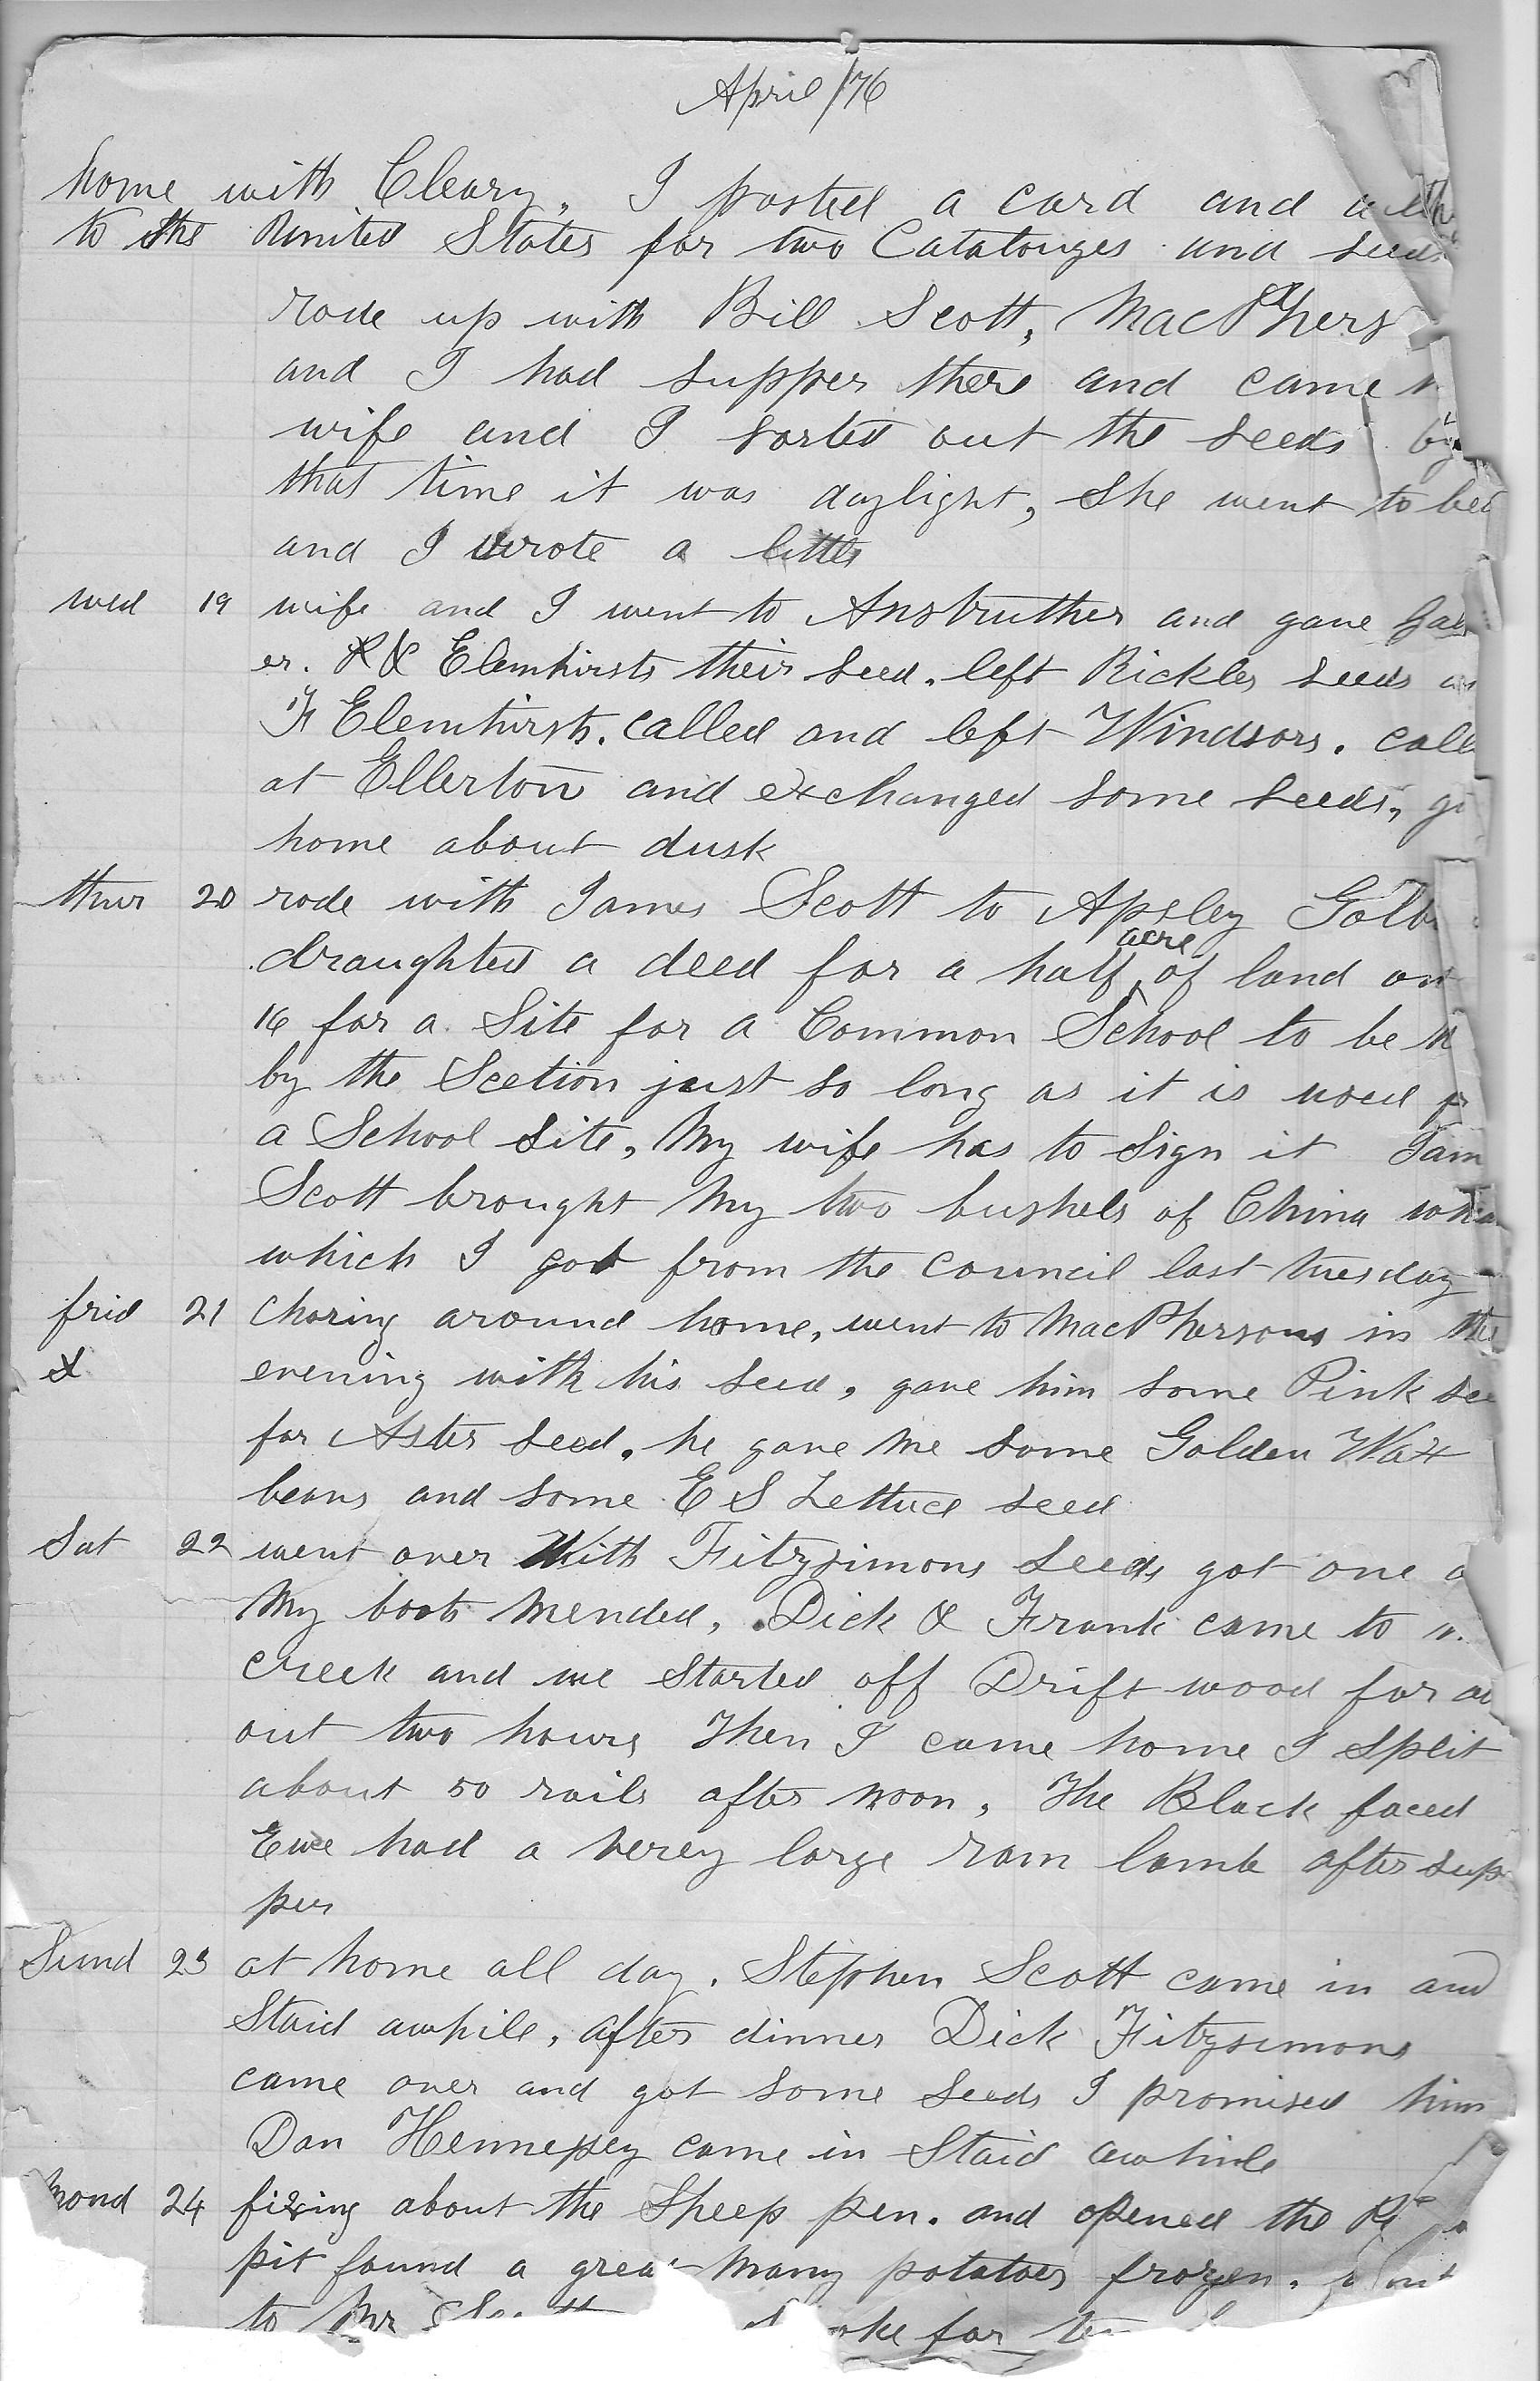 April /76
home with Cleary, I posted a card and a
to the United States for two Catalouges and seeds
rode up with Bill Scott, MacPhers
and I had supper there and came
wife and I sorted out the seeds by
that time it was daylight, She went to bed
and I wrote a letter
wed 19 wife and I went to Anstruther and gave
er. R & Elemhirsts their seed. left Rickles seeds
F Elemhirsts. called and left Windsors. call
at Ellerton and exchanged some seeds,
home about dusk
thur 20 rode with James Scott to Apsley Golb
draughted a deed for a half acre of land on
16 for a Site for a Common School to be
by the Scetion just so long as it is used
a School Site, My wife has to Sign it Jam
Scott brought My two bushels of China
which I got from the Council last tuesday
frid 21 Choring around home, went to MacPhersons in the
& evening with his seed, gave him some Pink see
for Aster seed. he gave me some Golden Wax
beans and some E S Lettuce seed
Sat 22 went over With Fitzsimons seeds got one
My boots Mended, Dick & Frank came to
creek and we Started off Drift wood for a
out two hours Then I came home I split
about 50 rails after noon, The Black faced
Ewe had a verey large ram lamb after sup
per
Sund 23 at home all day. Stephen Scott came in and
Staid awhile, after dinner Dick Fitzsimons
came over and got some seeds I promised him
Dan Hennessey came in Staid awhile
mond 24 fixing about the Sheep pen. and opened the
pit found a great many potatoes frozen.
to Mr for